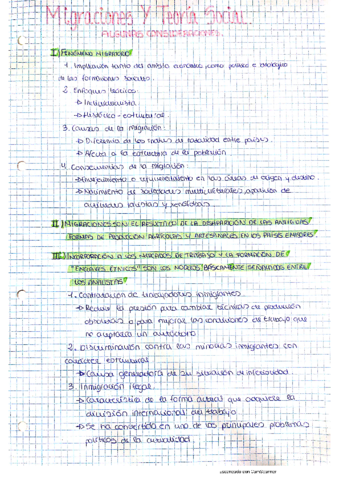 Migraciones Y Teoría Social
ALGUNAS CONSIDERACIONES.
I) FENÓMENO MIGRATORIO
1. Implicación tanto del ámbito económico, como político e ideológico
de las formaciones sociales.
2. Enfoques teóricos:
→ Individualista
→ Histórico - estructural
3. Causas de la migración:
→ Diferencia de las tasas de salarialidad entre países.
→ Afecta a la estructura de la población
4. Consecuencias de la migración:
→ Envejecimiento o rejuvenecimiento en las áreas de origen y destino.
→ Nacimiento de sociedades multiculturales, aparición de
actitudes racistas y xenófobas.
II) MIGRACIONES SON EL RESULTADO DE LA DESAPARICIÓN DE LAS ANTIGUAS
FORMAS DE PRODUCCIÓN AGRÍCOLAS Y ARTESANALES EN LOS PAÍSES EMISORES
III) INCORPORACIÓN A LOS MERCADOS DE TRABAJO Y LA FORMACIÓN DE
"ENCLAVES ÉTNICOS" SON LOS MODELOS BÁSICAMENTE DEFENDIDOS ENTRE
LOS ANALISTAS
1. Contratación de trabajadores inmigrantes
→ Reducir la presión para cambiar técnicas de producción
obsoletas o para mejorar las condiciones de trabajo que
no aceptaría un autóctono
2. Discriminación contra las minorías inmigrantes con
carácter estructural
→ Causa generadora de su situación de inferioridad
3. Inmigración ilegal.
→ Característica de la forma actual que adquiere la
división internacional del trabajo
→ Se ha convertido en uno de los principales problemas
políticos de la actualidad.
Escaneado con CamScanner